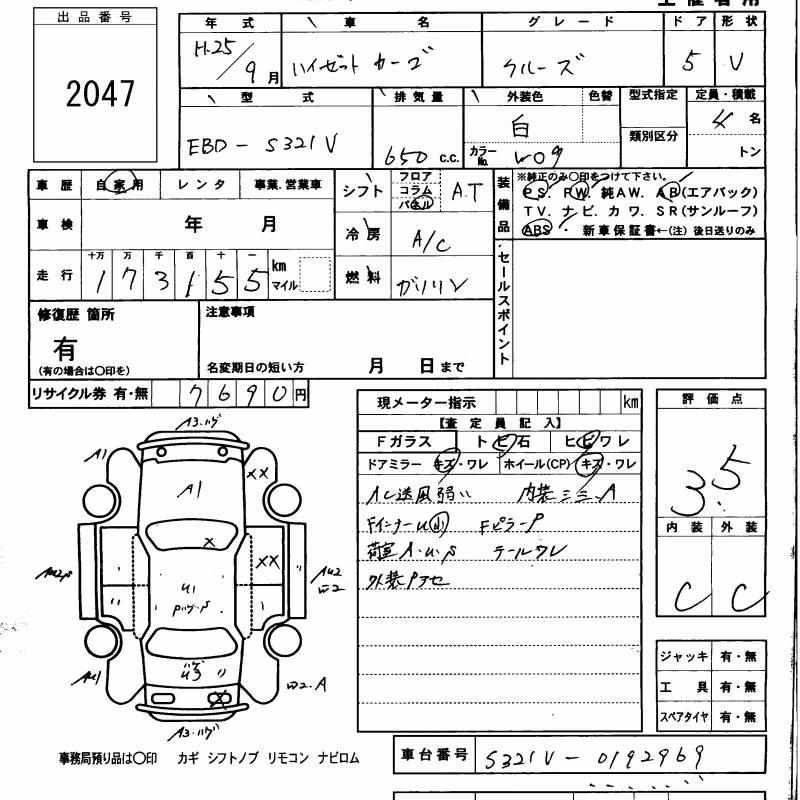 出品番号
2047
年式 車名 グレード ドア 形状
H.25/9月 ハイゼット カーゴ クルーズ 5 V
型式 排気量 外装色 色替 型式指定 定員・積載
EBD-S321V 650 c.c. 白 類別区分 4名
カラーNo. W09 トン
車歴 自家用 レンタ 事業.営業車
シフト フロア コラム パネル A.T
装備品
※純正のみ〇印をつけて下さい。
PS. PW. 純AW. AB(エアバック)
TV. ナビ. カワ. SR(サンルーフ)
ABS ・ 新車保証書←(注)後日送りのみ
車検 年 月
冷房 A/C
走行 十万 万 千 百 十 一
173155 km マイル
燃料 ガソリン
セールスポイント
修復歴 箇所
有
(有の場合は〇印を)
注意事項
名変期日の短い方 月 日まで
リサイクル券 有・無 7690円
現メーター指示 km
【査定員記入】
Fガラス トビ石 ヒビワレ
ドアミラー キズ・ワレ ホイール(CP) キズ・ワレ
A/C送風弱い 内装キズ.A
FインナーU FピラーP
荷室A.U.P テールワレ
外装Pアセ
評価点
3.5
内装 外装
C C
ジャッキ 有・無
工具 有・無
スペアタイヤ 有・無
A3.ハゲ
A1
XX
A1
X
XX
AU2
U1
A3.ハゲ
事務局預り品は〇印 カギ シフトノブ リモコン ナビロム
車台番号 S321V-0192969